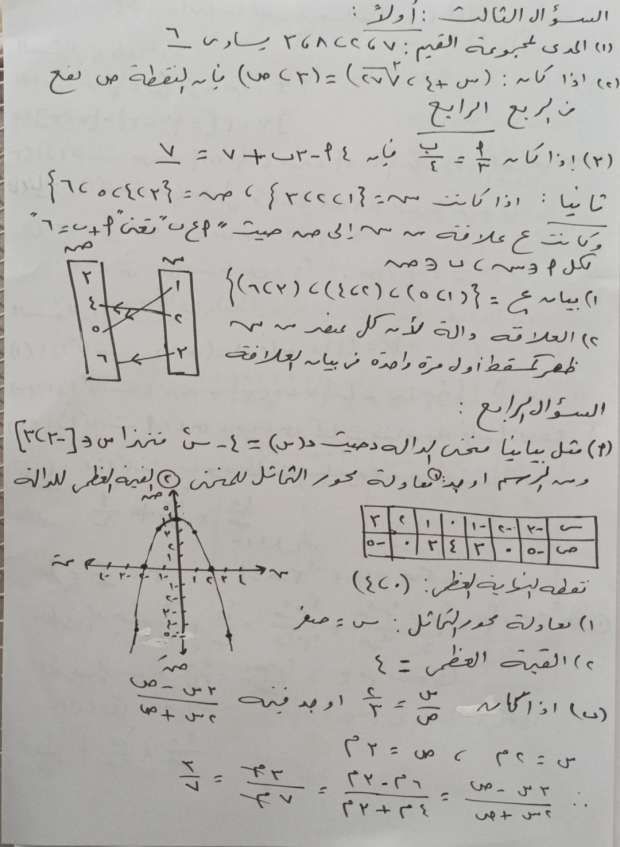 السؤال الثالث : أولاً :
(١) المدى لمجموعة القيم : ٧ ، ٢ ، ٨ ، ٣ يساوى ٦
(٢) اذا كان : (س + ٤ ، ٣√٢٧) = (٣ ، ص) فإن النقطة ص تقع
فى الربع الرابع
(٣) إذا كان أ/٣ = ب/٤ فإن ٤أ - ٣ب + ٧ = ٧
ثانياً : اذا كانت س = {١ ، ٢ ، ٣} ، ص = {٣ ، ٤ ، ٥ ، ٦}
وكانت ع علاقة من س إلى ص حيث "أ ع ب" تعنى "أ + ب = ٦"
لكل أ ∈ س ، ب ∈ ص
ص س
٣ ١
٤ ٢
٥ ٣
٦
١) بيان ع = {(١ ، ٥) ، (٢ ، ٤) ، (٣ ، ٦)}
٢) العلاقة دالة لأن كل عنصر من س
ظهر كمسقط أول مرة واحدة فى بيان العلاقة
السؤال الرابع :
(أ) مثل بيانياً منحنى الدالة د حيث د(س) = ٤ - س٢ متخذا س ∈ [-٣ ، ٣]
ومن الرسم اوجد : ① معادلة محور التماثل للمنحنى ② القيمة العظمى للدالة
س -٣ -٢ -١ ٠ ١ ٢ ٣
ص -٥ ٠ ٣ ٤ ٣ ٠ -٥
نقطة النهاية العظمى : (٠ ، ٤)
١) معادلة محور التماثل : س = صفر
٢) القيمة العظمى = ٤
(ب) اذا كان س/ص = ٢/٣ اوجد قيمة (٣س - ص)/(٢س + ص)
س = ٢م ، ص = ٣م
∴ (٣س - ص)/(٢س + ص) = (٦م - ٣م)/(٤م + ٣م) = ٣م/٧م = ٣/٧